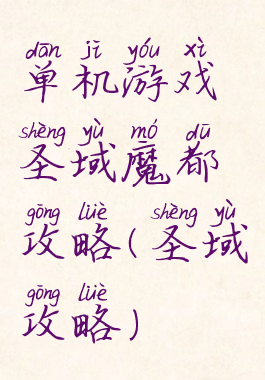 dān jī yóu xì
单机游戏
shèng yù mó dū
圣域魔都
gōng lüè shèng yù
攻略(圣域
gōng lüè
攻略)